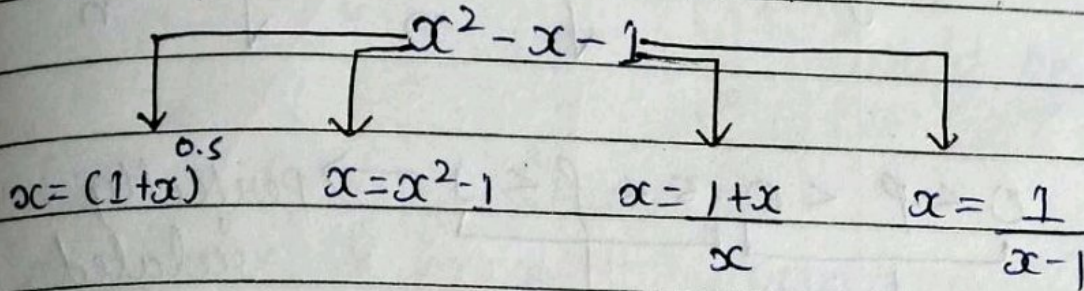 x² - x - 1
x = (1+x)^0.5 x = x² - 1 x = (1+x)/x x = 1/(x-1)